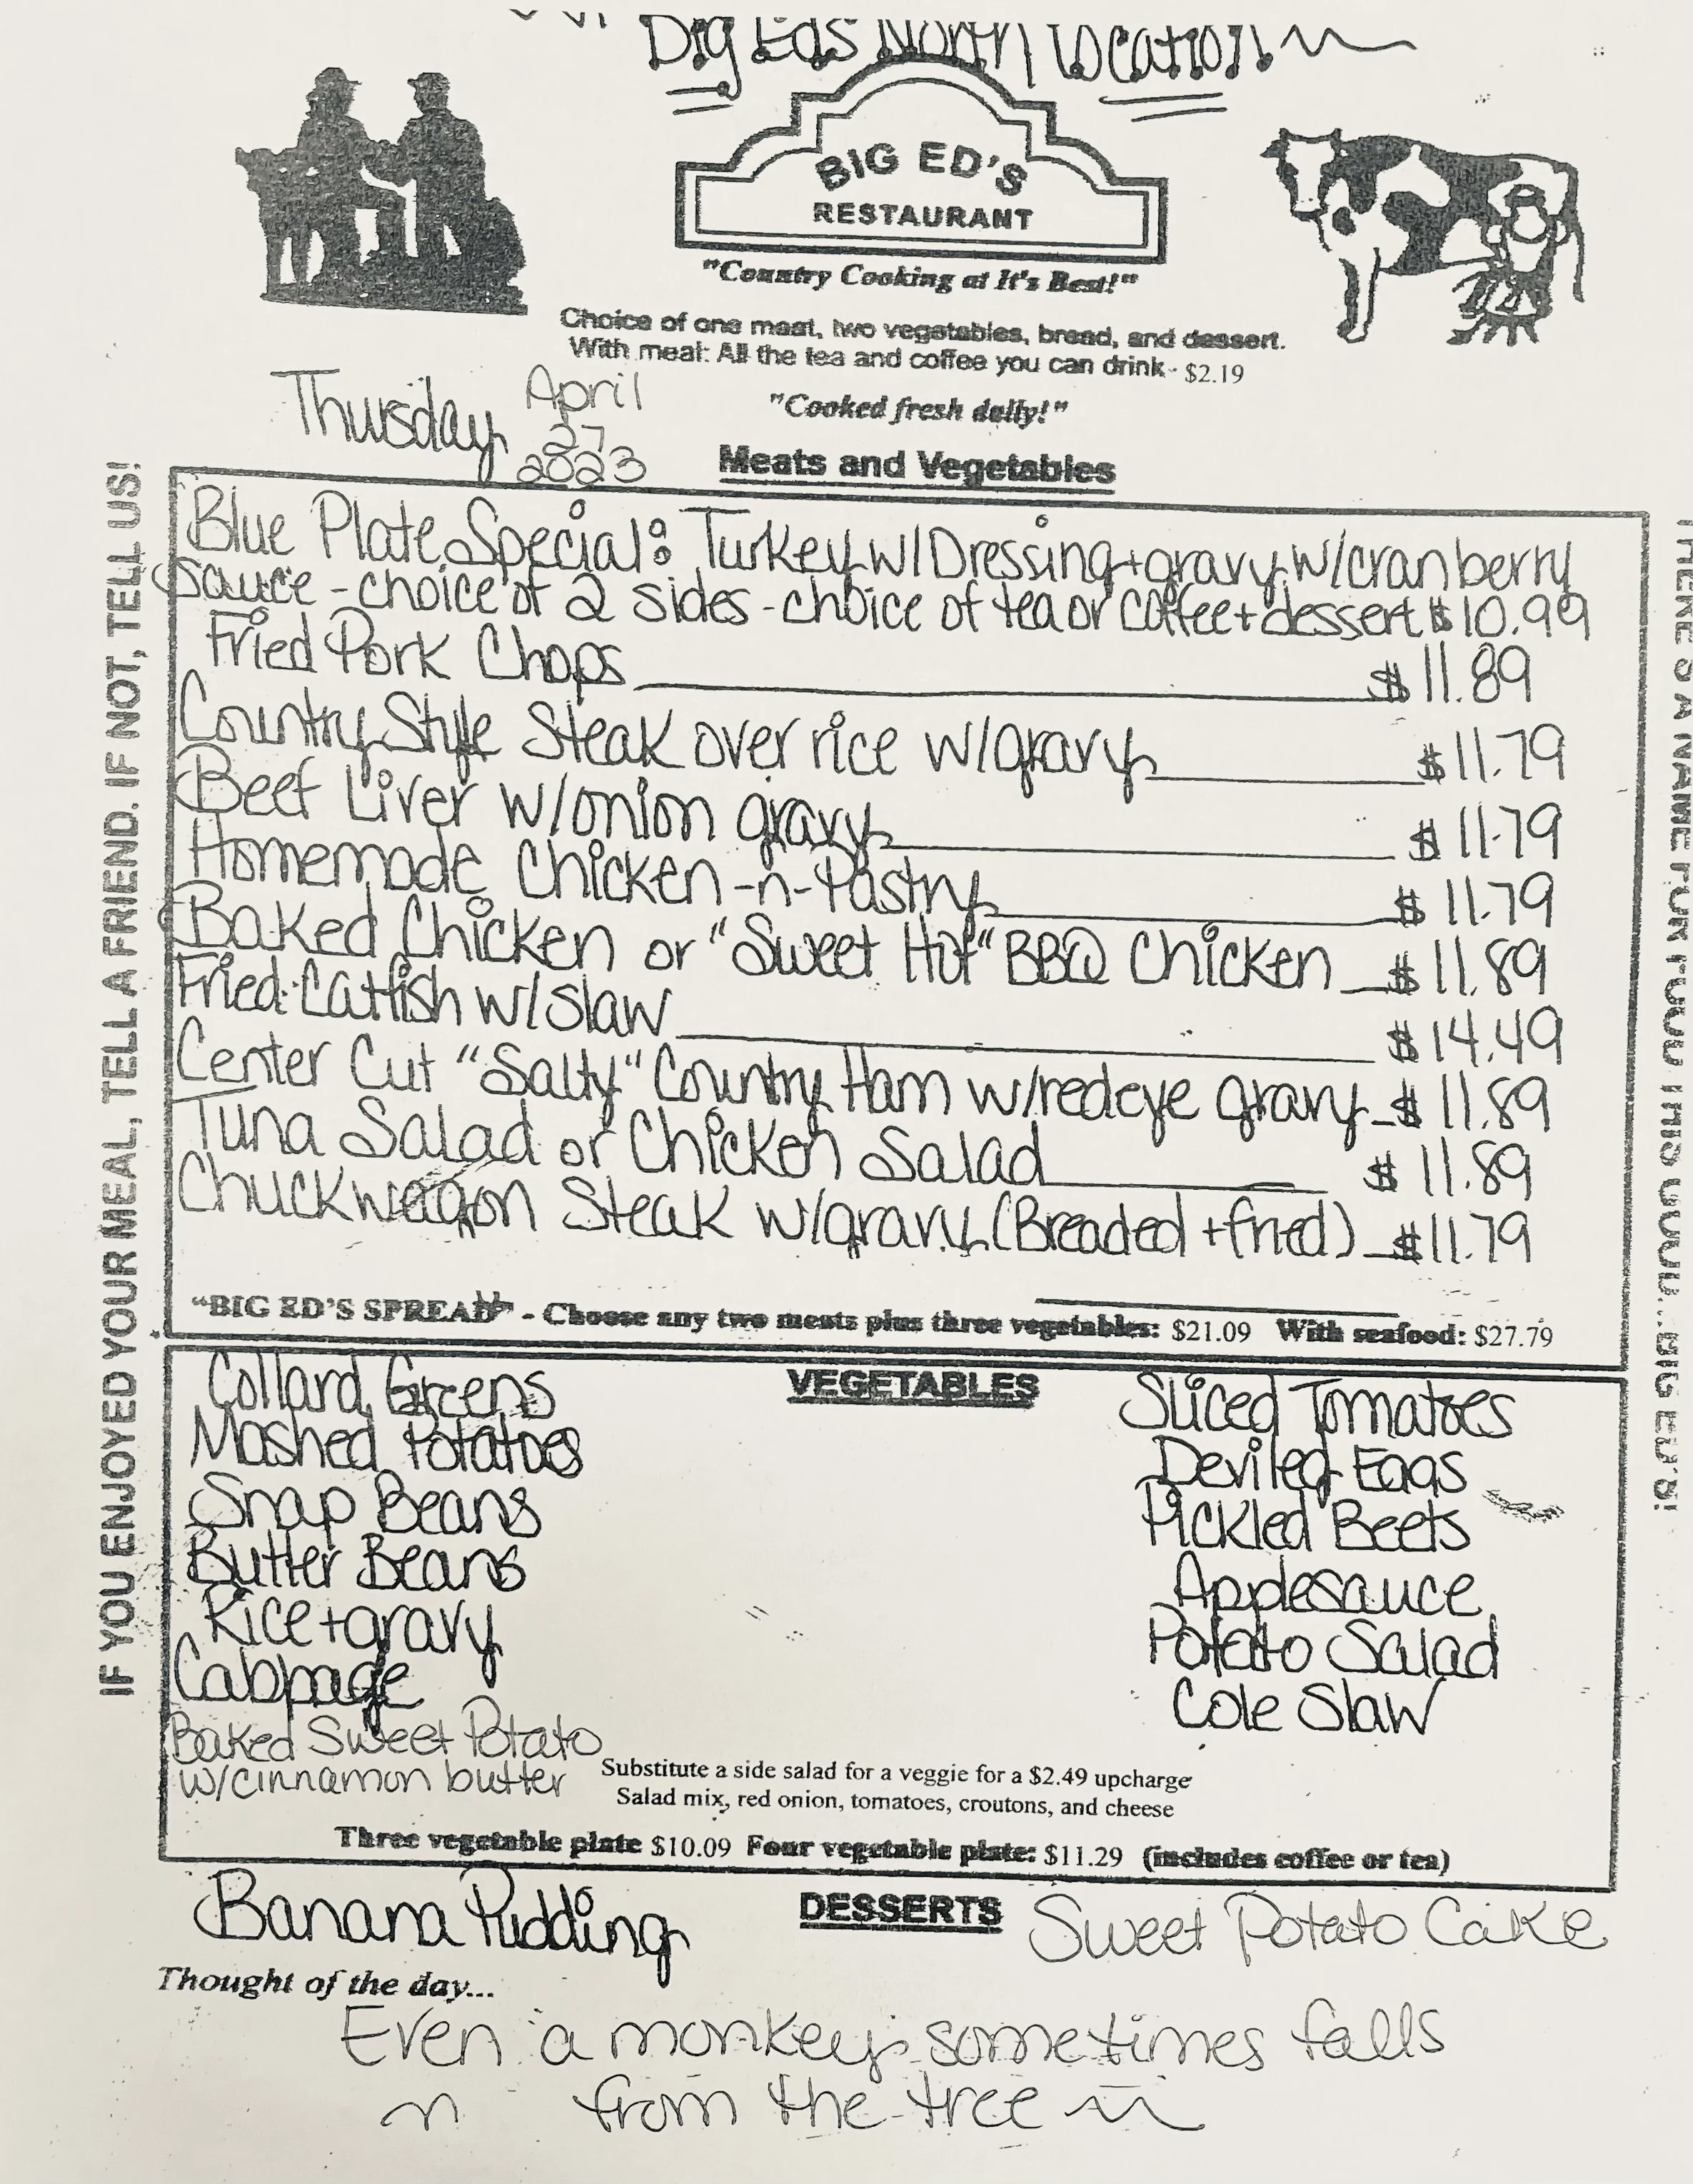 Big Eds North Location
BIG ED'S
RESTAURANT
"Country Cooking at It's Best!"
Choice of one meat, two vegetables, bread, and dessert.
With meal: All the tea and coffee you can drink - $2.19
"Cooked fresh daily!"
Thursday April
27
2023
Meats and Vegetables
Blue Plate Special: Turkey w/Dressing + gravy w/cranberry
sauce - choice of 2 sides - choice of tea or coffee + dessert $10.99
Fried Pork Chops $11.89
Country Style Steak over rice w/gravy $11.79
Beef Liver w/onion gravy $11.79
Homemade Chicken-n-Pastry $11.79
Baked Chicken or "Sweet Hot" BBQ Chicken $11.89
Fried Catfish w/slaw $14.49
Center Cut "Salty" Country Ham w/redeye gravy $11.89
Tuna Salad or Chicken Salad $11.89
Chuckwagon Steak w/gravy (Breaded + fried) $11.79
"BIG ED'S SPREAD" - Choose any two meats plus three vegetables: $21.09 With seafood: $27.79
VEGETABLES
Collard Greens
Mashed Potatoes
Snap Beans
Butter Beans
Rice + gravy
Cabbage
Baked Sweet Potato
w/cinnamon butter
Sliced Tomatoes
Deviled Eggs
Pickled Beets
Applesauce
Potato Salad
Cole Slaw
Substitute a side salad for a veggie for a $2.49 upcharge
Salad mix, red onion, tomatoes, croutons, and cheese
Three vegetable plate $10.09 Four vegetable plate: $11.29 (includes coffee or tea)
DESSERTS
Banana Pudding
Sweet Potato Cake
Thought of the day...
Even a monkey sometimes falls
from the tree
IF YOU ENJOYED YOUR MEAL, TELL A FRIEND. IF NOT, TELL US!
THERE'S A NAME FOR FOOD THIS GOOD...BIG ED'S!